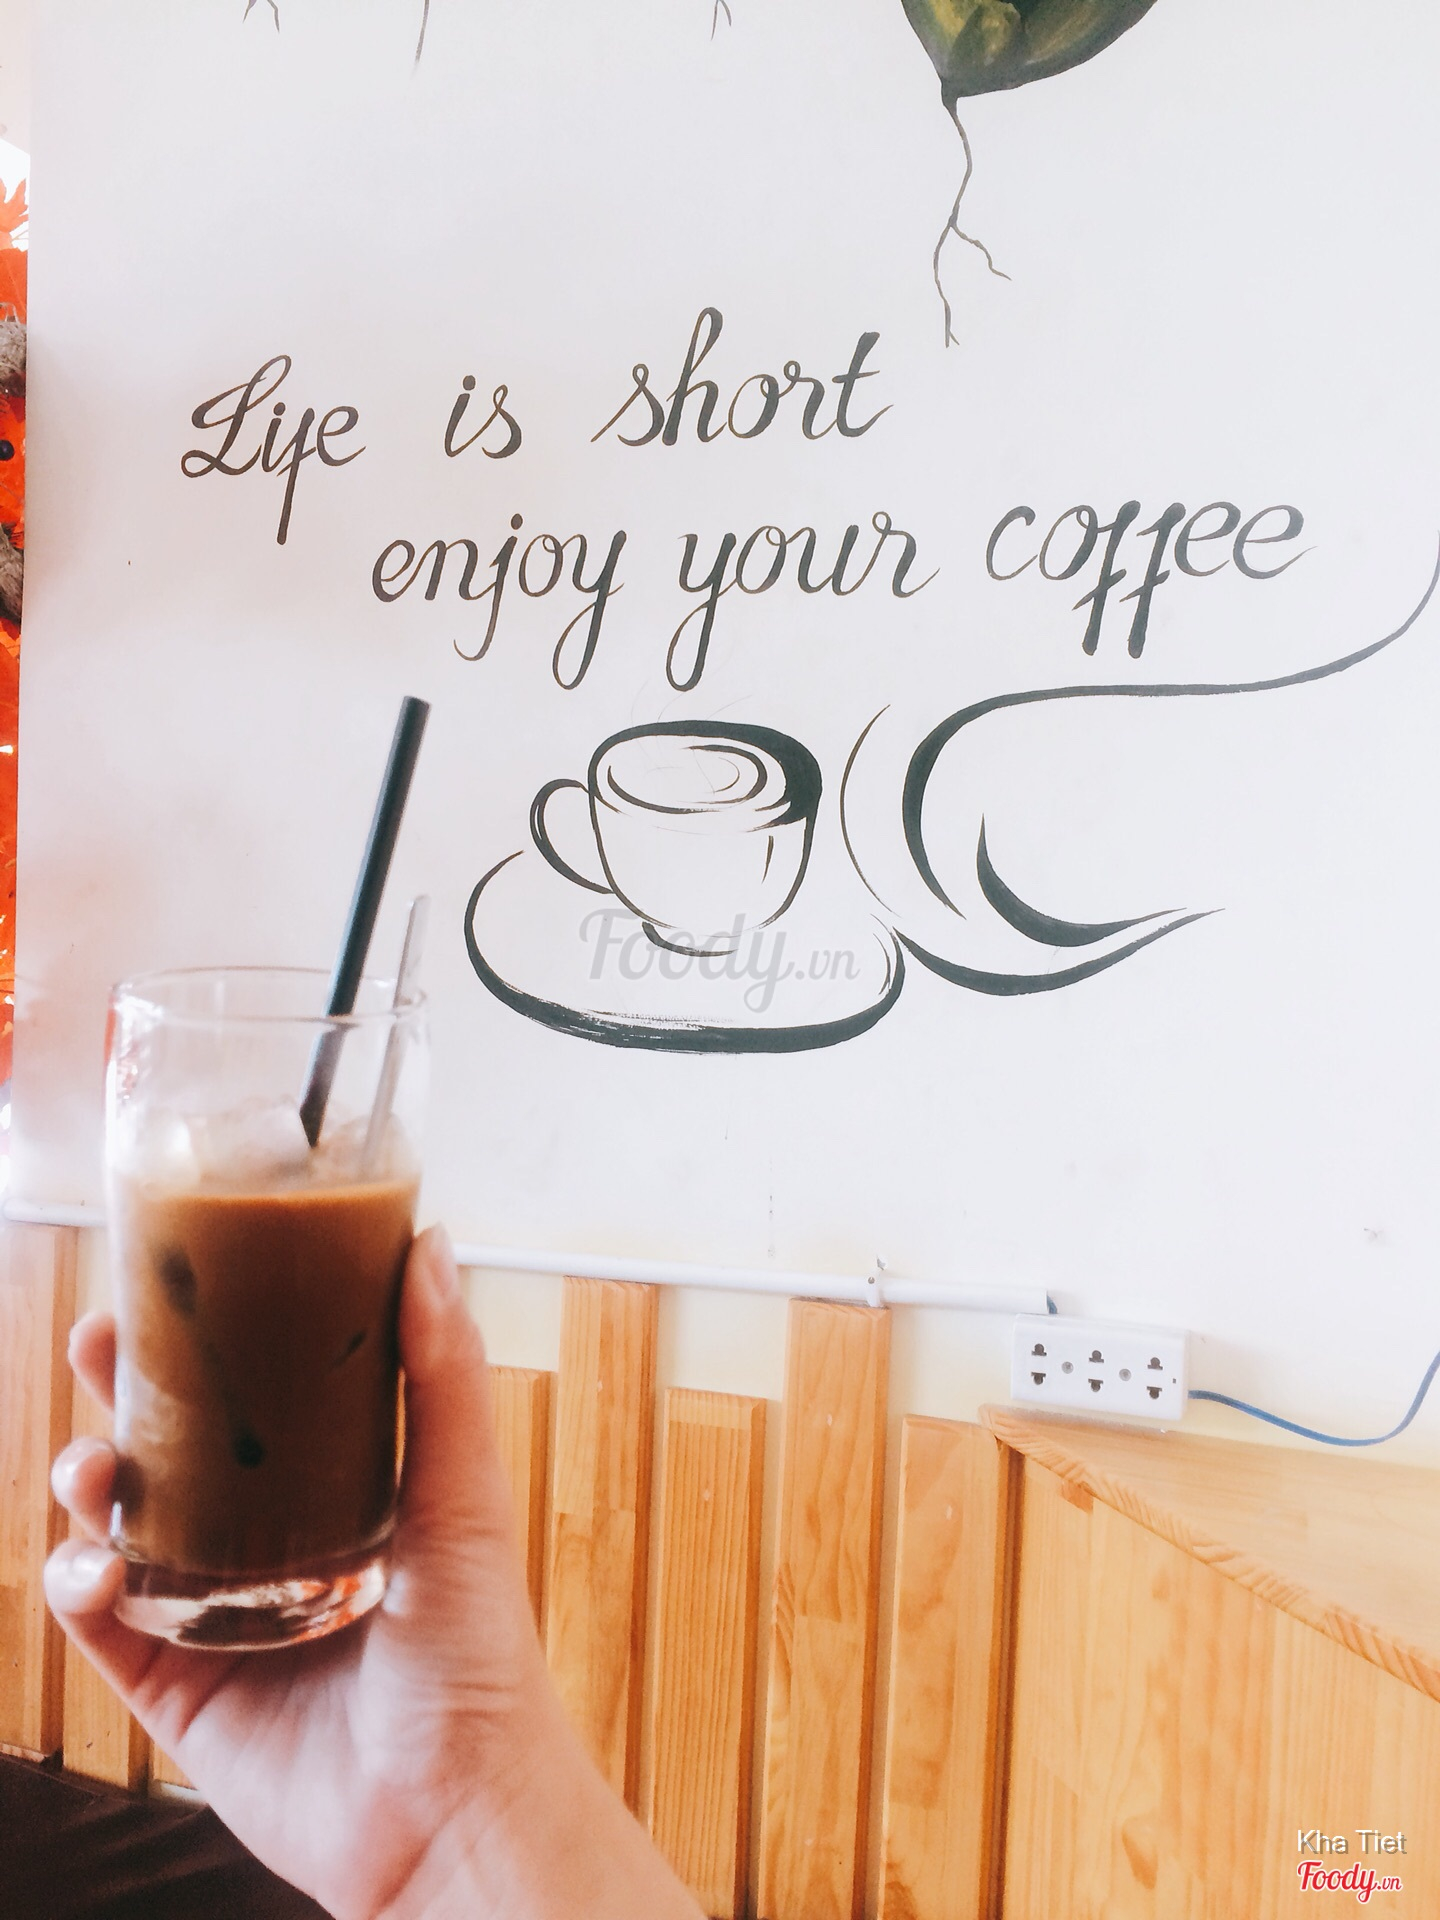 Life is short
enjoy your coffee
Foody.vn
Kha Tiet
Foody.vn